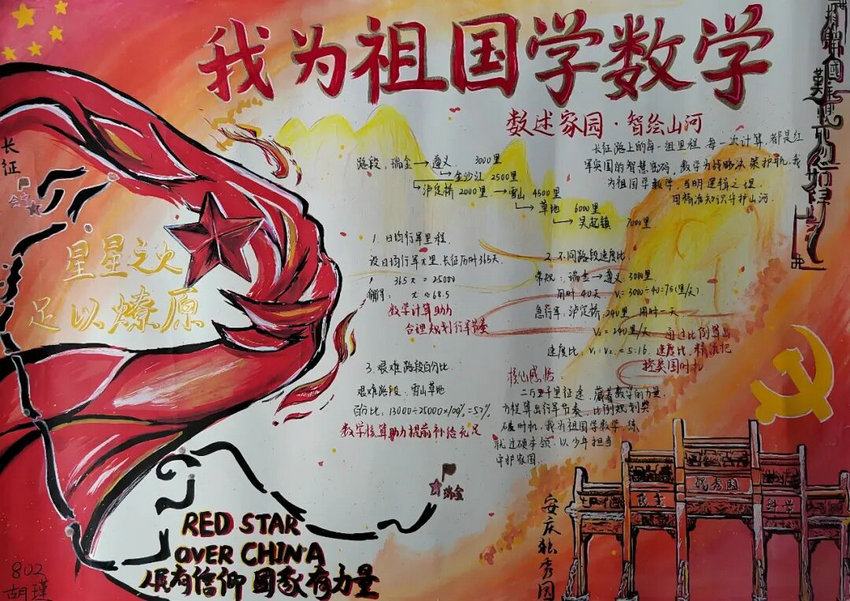 我为祖国学数学
数述家园·智绘山河
长征路上的每一组里程 每一次计算,都是红
军突围的智慧密码,数学为战略决策护航,我
为祖国学数学,当明逻辑之理
用精准知识守护山河.
路段,瑞金→遵义 3000里
→金沙江 2500里
→泸定桥 2000里→雪山 4500里
→草地 6000里
→吴起镇 7000里
1.日均行军里程.
设日均行军x里,长征历时365天
365x=25000
x≈68.5
数学计算助力
合理规划行军节奏
2.不同路段速度比
常规:瑞金→遵义 3000里
用时40天 V₁=3000÷40=75(里/天)
急行军,泸定桥240里 用时一天
V₂=240里/天
速度比,V₁:V₂=5:16.速度比,精准记
3.艰难路段百分比.
艰难路段,雪山草地
百分比,13000÷25000×100%=52%
数学核算助力提前补给充足
核心感悟:
二万五千里征途 藏着数学的力量
方程算出行军节奏 比例规划突
破时机,我为祖国学数学,练
就过硬本领 以少年担当
守护家园.
长征
会宁
星星之火
足以燎原
瑞金
RED STAR
OVER CHINA
人有信仰 国家有力量
安庆独秀园
独秀园
802
胡瑾